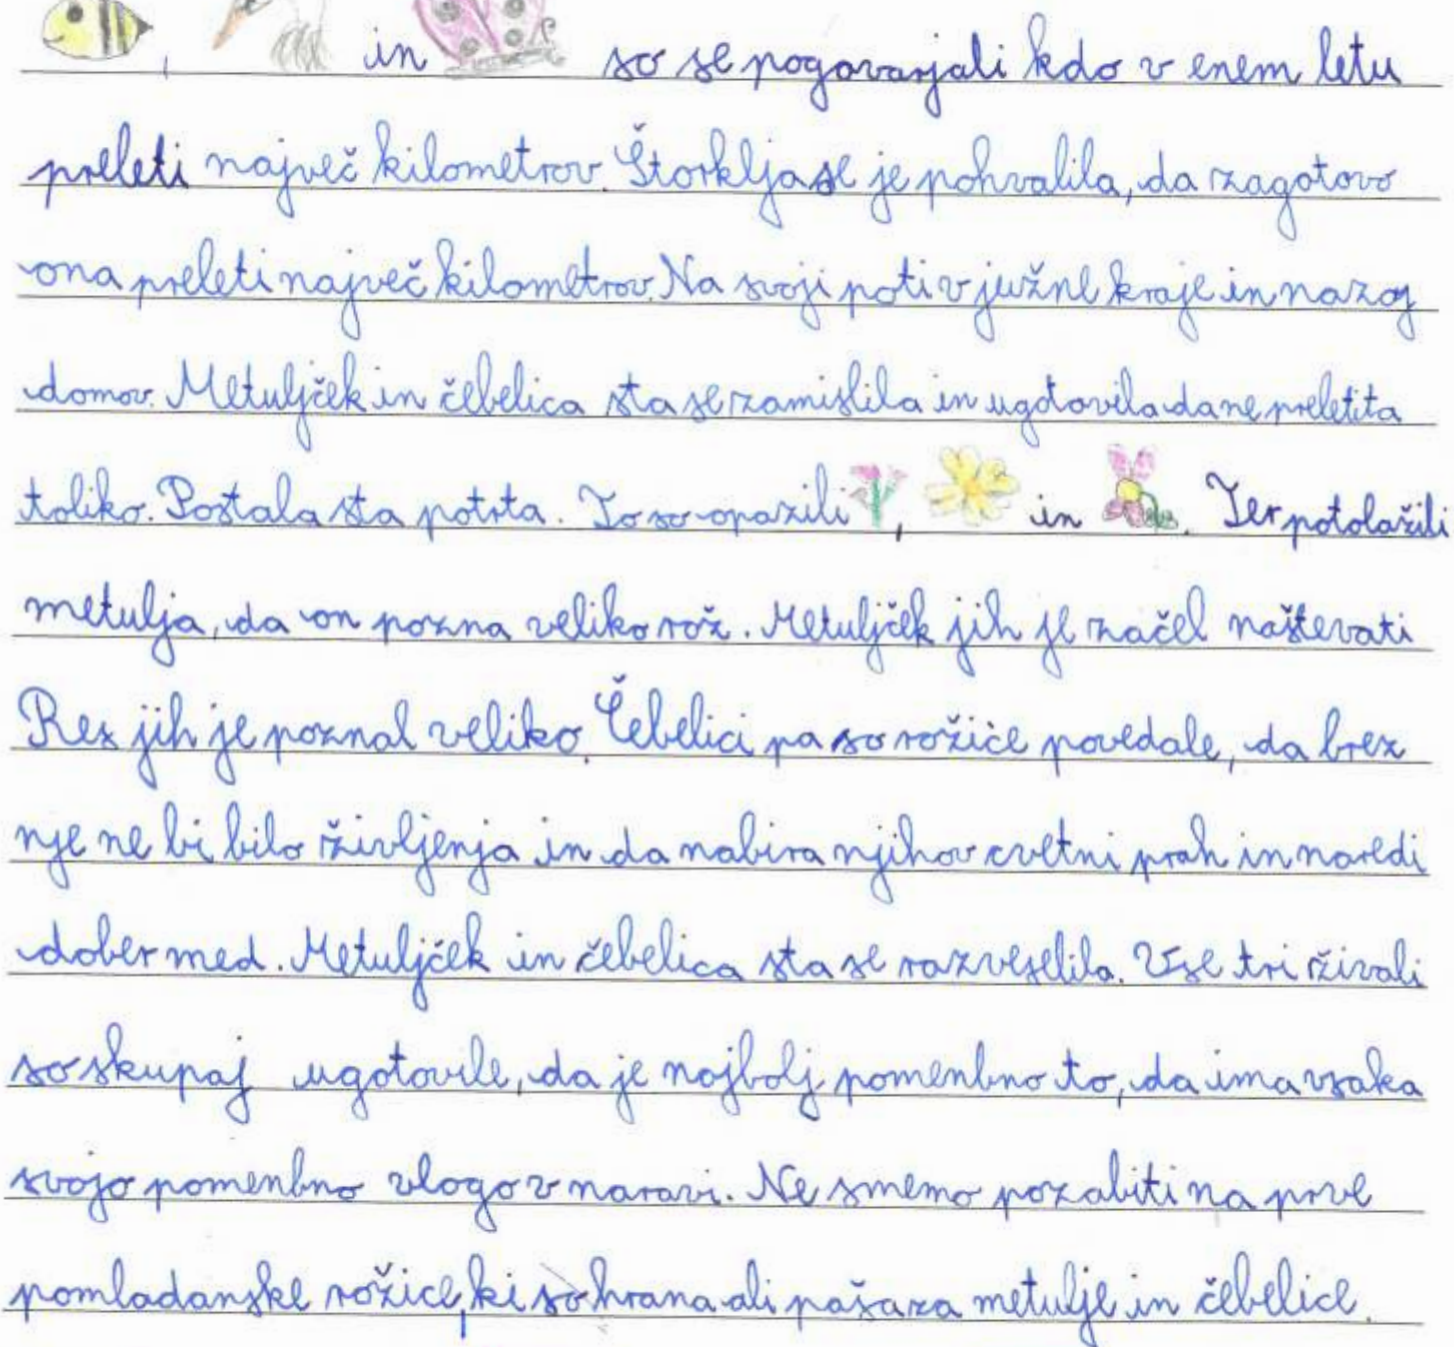 , in so se pogovarjali kdo v enem letu
preleti največ kilometrov. Štorklja se je pohvalila, da zagotovo
ona preleti največ kilometrov. Na svoji poti v južne kraje in nazaj
domov. Metuljček in čebelica sta se zamislila in ugotovila da ne preletita
toliko. Postala sta potrta. To so opazili , in . Ter potolažili
metulja, da on pozna veliko rož. Metuljček jih je začel naštevati
Res jih je poznal veliko. Čebelici pa so rožice povedale, da brez
nje ne bi bilo življenja in da nabira njihov cvetni prah in naredi
dober med. Metuljček in čebelica sta se razveselila. Vse tri živali
so skupaj ugotovile, da je najbolj pomenbno to, da ima vsaka
svojo pomenbno vlogo v naravi. Ne smemo pozabiti na prve
pomladanske rožice, ki so hrana ali paša za metulje in čebelice.